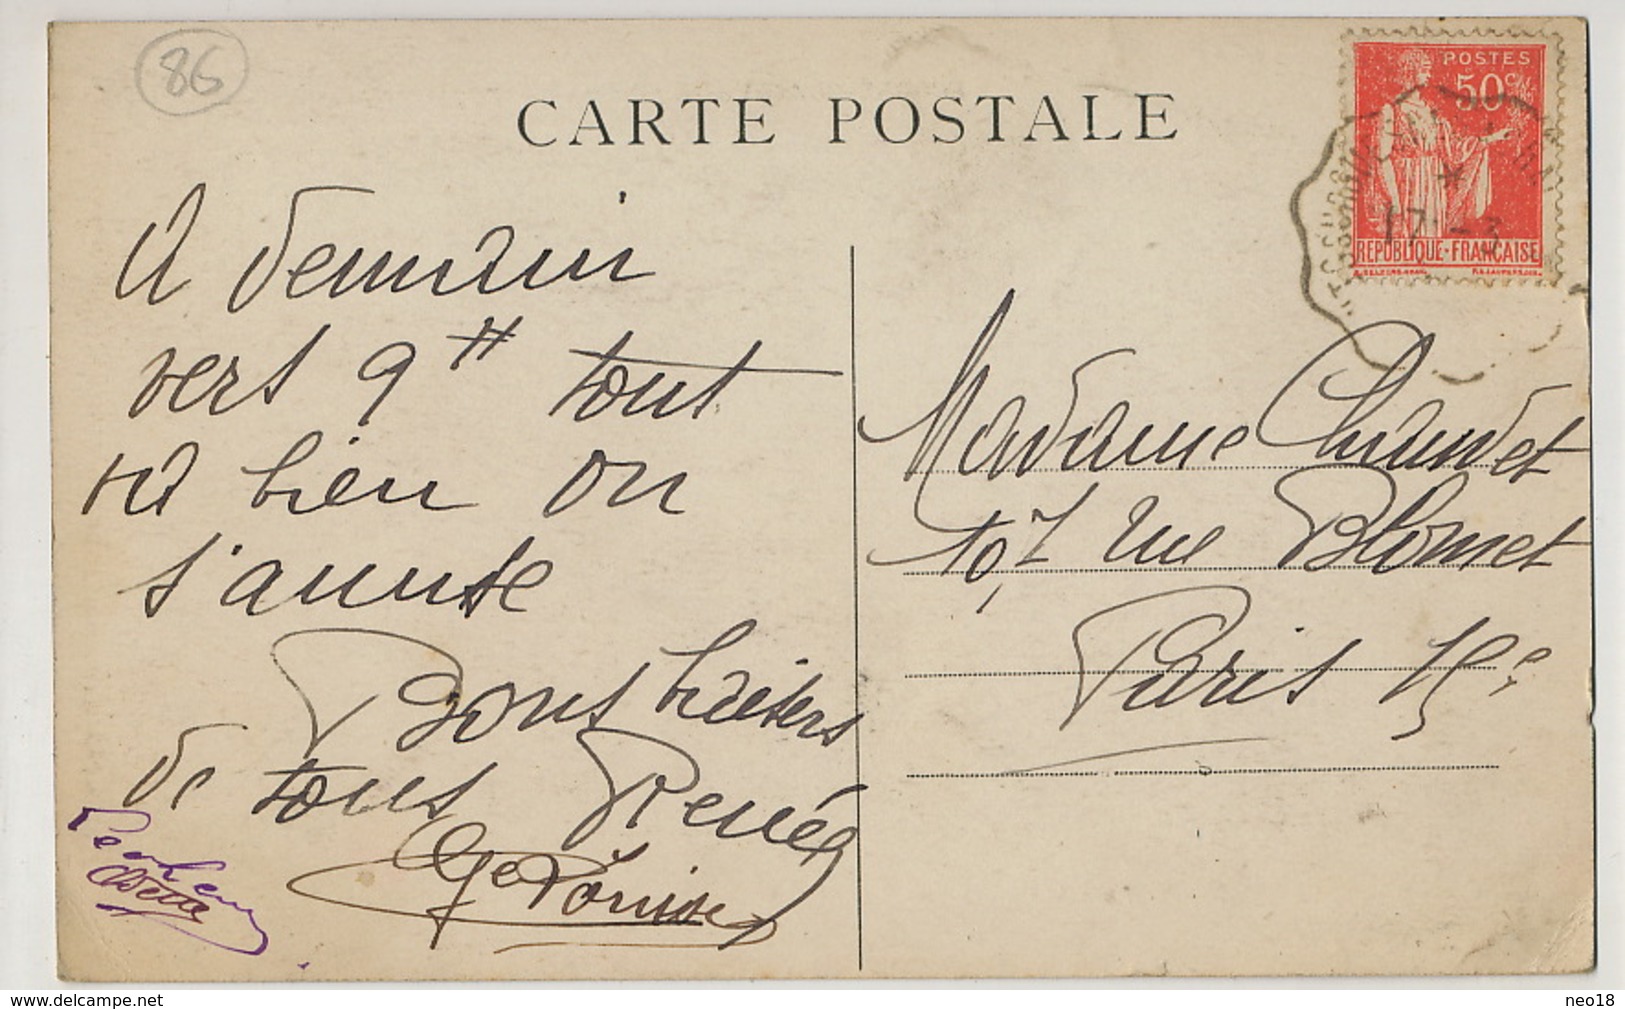 86
CARTE POSTALE
POSTES
50c
RÉPUBLIQUE-FRANÇAISE
17 - 3
A demain
vers 9H tout
va bien on
s'amuse
Bons baisers
de tous Renée
Louise
Odette
Madame Chaudet
107 rue Blomet
Paris 15e
www.delcampe.net
neo18